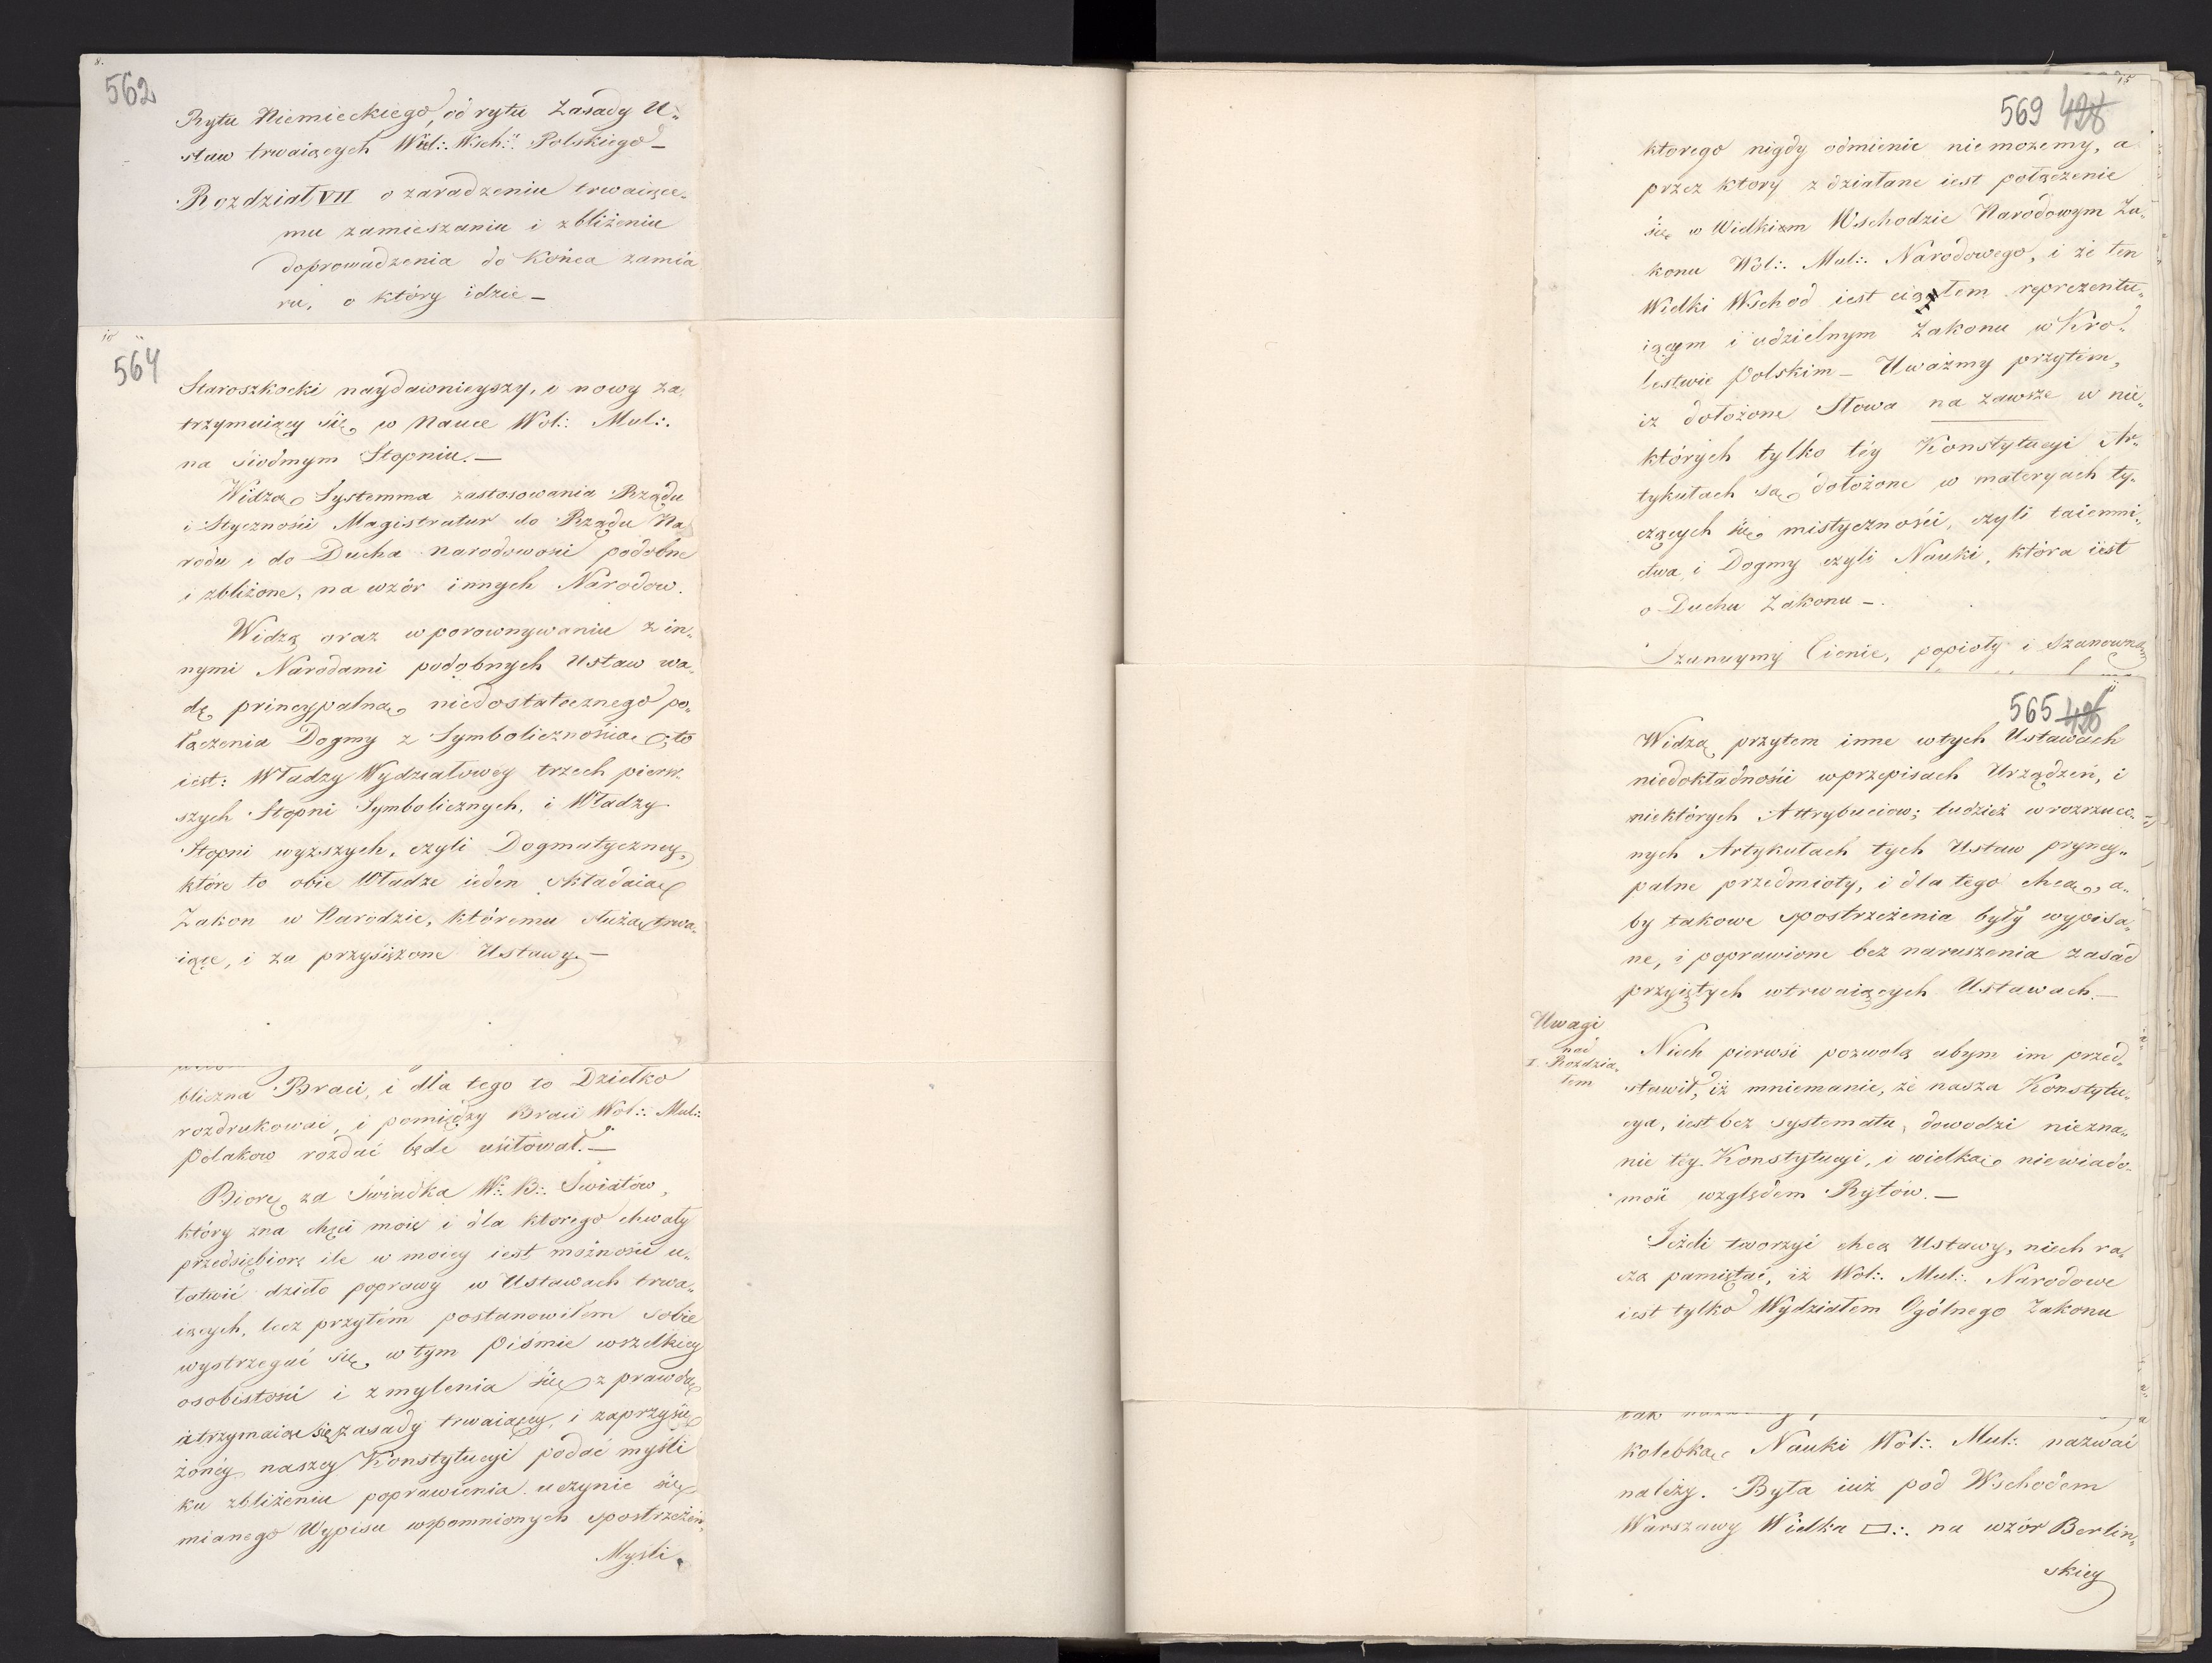 8.
562
Rytu Niemieckiego, od rytu Zasady U„
staw trwaiących Wiel:. Wsch:. Polskiego —
Rozdział VII o zaradzeniu trwaiące„
mu zamieszaniu i zbliżeniu
doprowadzenia do Końca zamia
ru, o który idzie —
10
564
Staroszkocki naydawnieyszy, i nowy za„
trzymuiący się w Nauce Wol:. Mul:.
na siodmym Stopniu. —
Widzą Systemma zastosowania Rządu
i Styczności Magistratur do Rządu Na
rodu i do Ducha narodowości podobne
i zbliżone, na wzór innych Narodow.
Widzą oraz w porownywaniu z in„
nymi Narodami podobnych Ustaw wa„
dę pryncypalną niedostatecznego po„
łączenia Dogmy z Symbolicznością, to
iest: Władzy Wydziałowey trzech pierw„
szych Stopni Symbolicznych, i Władzy
Stopni wyższych, czyli Dogmatyczney,
które to obie Władze ieden składaią
Zakon w Narodzie, któremu służą trwa„
iące, i za przysiężone Ustawy. —
bliczna Braci, i dla tego to Dziełko
rozdrukować, i pomiędzy Braci Wol:. Mul:.
Polakow rozdać będę usiłował. —
Biorę za Świadka W:. B:. Światów,
który zna chęci moie i dla ktorego chwały
przedsiębiorę ile w moiey iest możności u„
łatwić dzieło poprawy w Ustawach trwa„
iących, lecz przytém postanowiłem sobie
wystrzegać się w tym Piśmie wszelkiey
osobistości i zmylenia się z prawdą
utrzymaiąc się zasady trwaiącey, i zaprzysię„
żonéy naszey Konstytucyi podać myśli
ku zbliżeniu poprawienia uczynić się
mianego Wypisu wspomnionych spostrzeżeń„
Myśli
15
569 428
ktorego nigdy odmienić niemożemy, a
przez ktory zdziałane iest połączenie
się w Wielkiem Wschodzie Narodowym Za„
konu Wol:. Mul:. Narodowego, i że ten
Wielki Wschod iest ciałem reprezentu„
iącym i udzielnym Zakonu w Kro„
lestwie Polskim — Uważmy przytém,
iż dołożone Słowa na zawsze w nie„
których tylko téy Konstytucyi Ar„
tykułach są dołożone w materyach ty„
czących się mistyczności, czyli taiemni„
ctwa, i Dogmy czyli Nauki, która iest
o Duchu Zakonu —.
Szanuymy Cienie, popioły i Szanowną
11
565 426
Widzą przytem inne w tych Ustawach
niedokładności w przepisach Urządzeń, i
niektórych Attrybuciow; tudzież w rozrzuco„
nych Artykułach tych Ustaw pryncy„
palne przedmioty, i dla tego chcą, a„
by takowe spostrzeżenia były wypisa„
ne, i poprawione bez naruszenia zasad
przyiętych w trwaiących Ustawach. —
Uwagi
nad
I. Rozdzia„
łem
Niech pierwsi pozwolą abym im przed„
stawił, iż mniemanie, że nasza Konstytu„
cya, iest bez systematu, dowodzi niezna„
nie téy Konstytucyi, i wielką niewiado„
mość względem Rytów. —
Jeżeli tworzyć chcą Ustawy, niech ra„
czą pamiętać, iż Wol:. Mul:. Narodowe
iest tylko Wydziałem Ogólnego Zakonu
kolebką Nauki Wol:. Mul:. nazwać
należy. Była iuż pod Wschodem
Warszawy Wielka ▭:. na wzór Berliń„
skiey